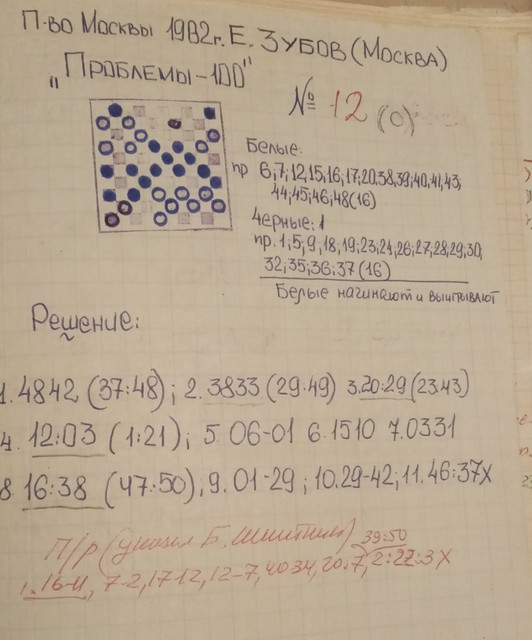 П-во Москвы 1982г. Е. Зубов (Москва)
„Проблемы-100"
№ 12 (0)
Белые:
пр 6,7,12,15,16,17,20,38,39,40,41,43,
44,45,46,48 (16)
Черные: 1
пр. 1,5,9,18,19,23,24,26,27,28,29,30,
32,35,36,37 (16)
Белые начинают и выигрывают
Решение:
1. 4842 (37:48); 2. 3833 (29:49) 3.20:29 (23:43)
4. 12:03 (1:21); 5 06-01 6.1510 7.0331
8. 16:38 (47:50), 9. 01-29; 10.29-42; 11. 46:37X
П/р (указал Б. Шкитkin) 39:50
1. 16-11, 7-2, 17-12, 12-7, 4034, 20:7, 2:22:3X